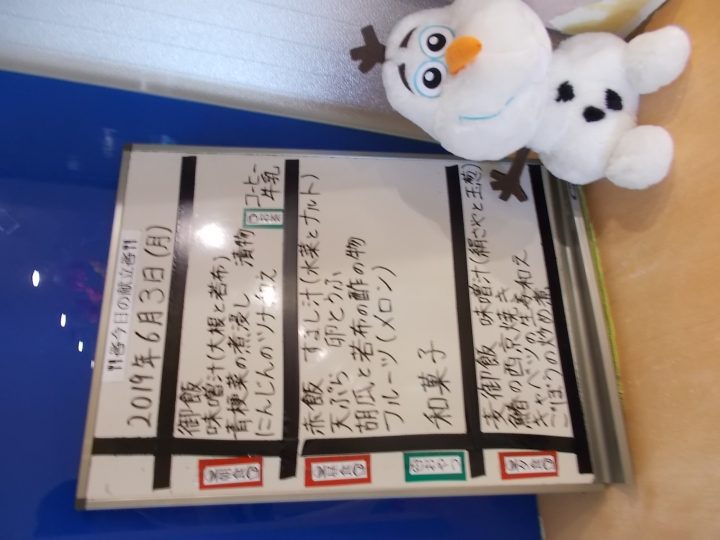 今日の献立
2019年6月3日(月)
朝食
御飯
味噌汁(大根と若布)
青梗菜の煮浸し 漬物
にんじんのツナ和え
コーヒー
牛乳
昼食
赤飯 すまし汁(水菜とナルト)
天ぷら 卵とうふ
胡瓜と若布の酢の物
フルーツ(メロン)
おやつ
和菓子
夕食
麦御飯 味噌汁(絹さやと玉葱)
鰆の西京焼き
キャベツの生姜和え
ごぼうの炒め煮